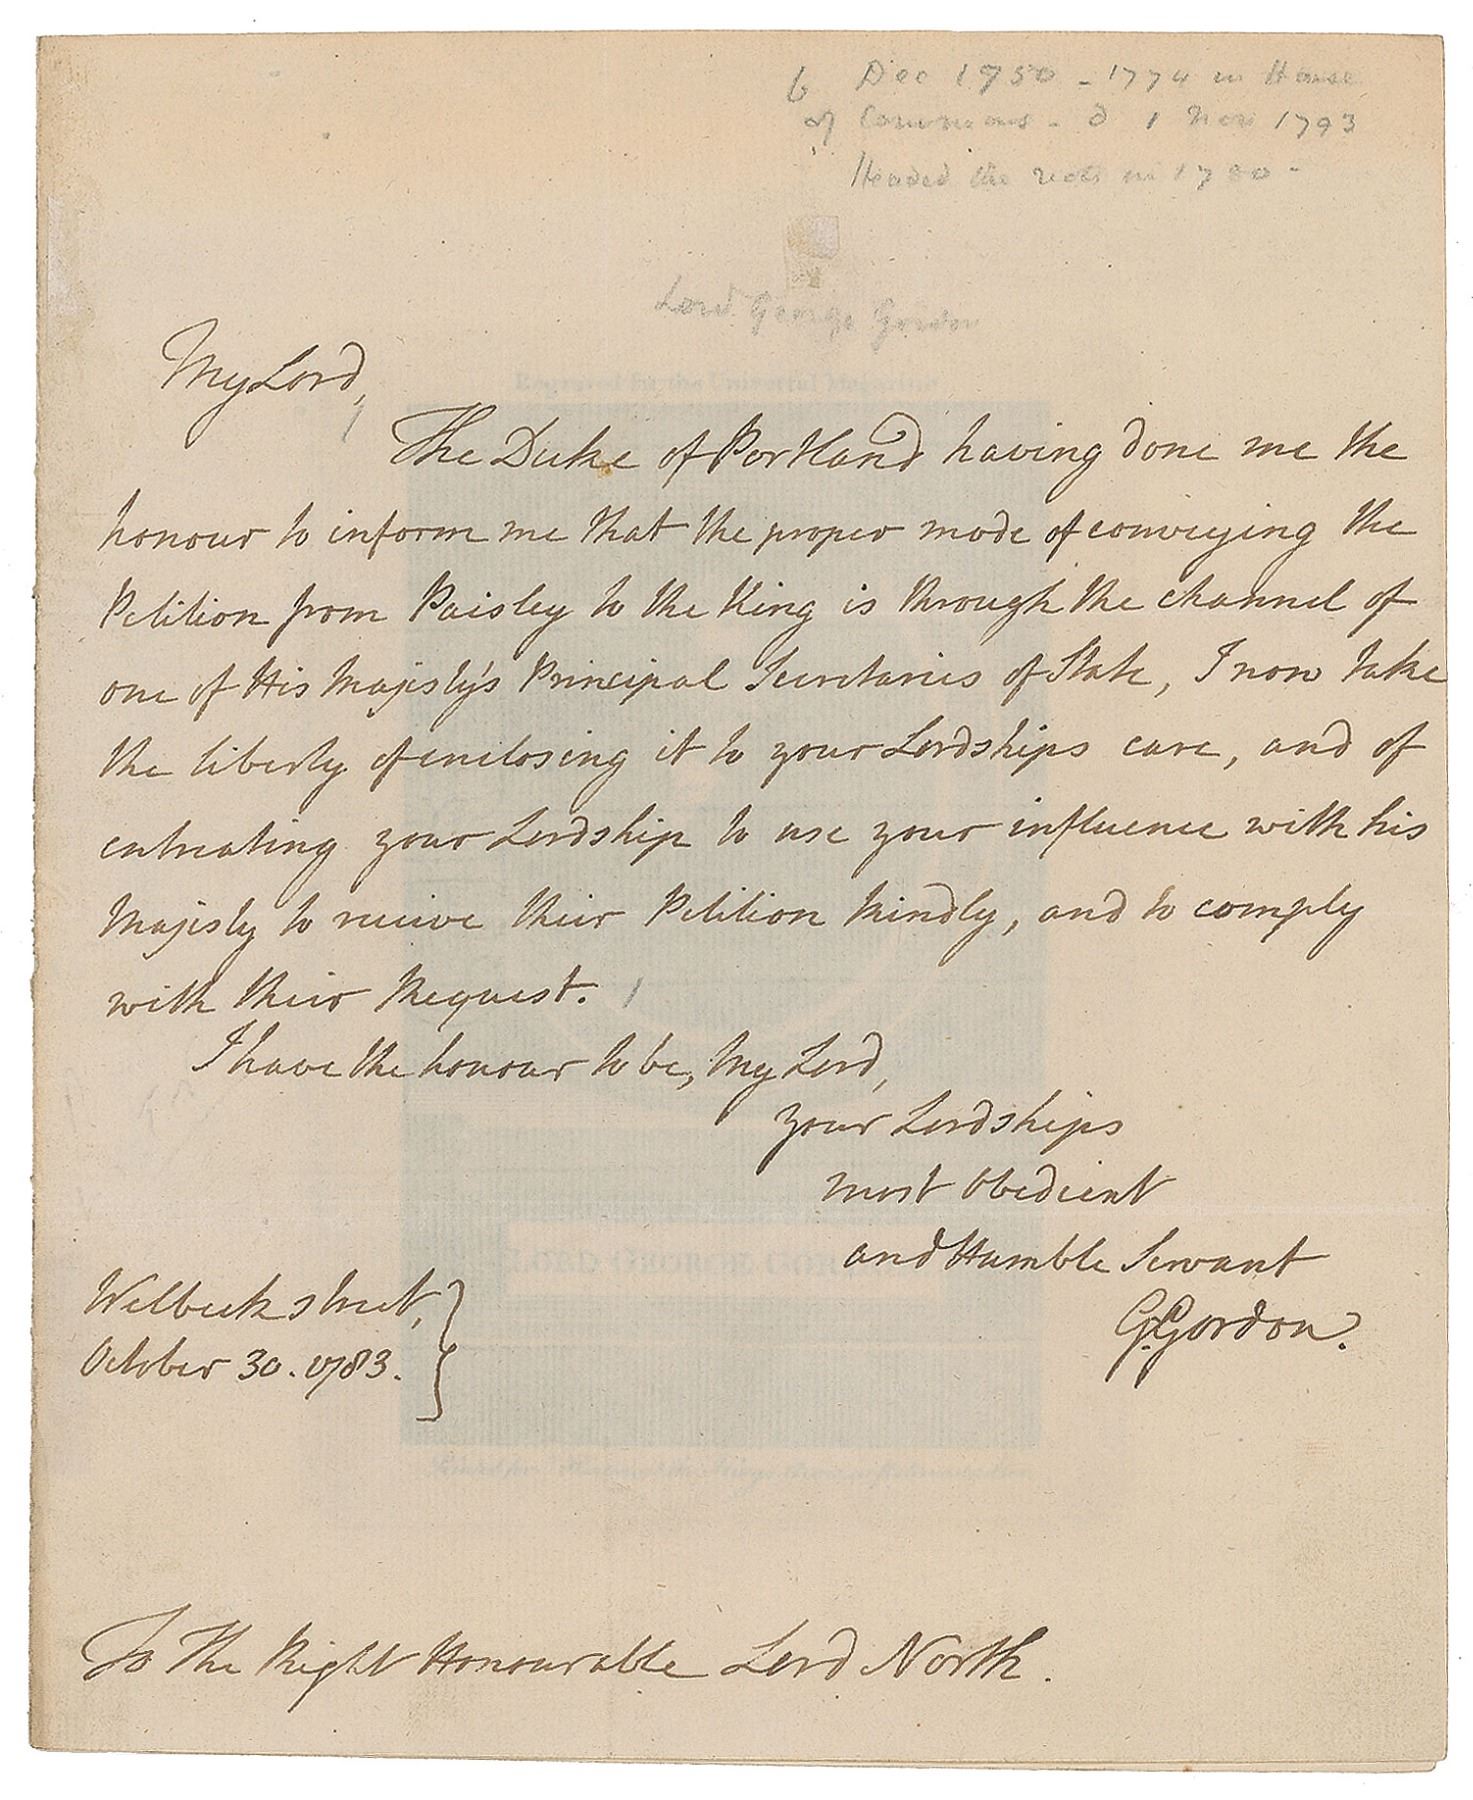 b Dec 1750 - 1774 in House
of Commons - d 1 Nov 1793
Headed the riots in 1780 -
Lord George Gordon
My Lord,
The Duke of Portland having done me the
honour to inform me that the proper mode of conveying the
Petition from Paisley to the King is through the channel of
one of His Majesty's Principal Secretaries of State, I now take
the liberty of enclosing it to your Lordships care, and of
entreating your Lordship to use your influence with his
Majesty to receive their Petition kindly, and to comply
with their Request.
I have the honour to be, My Lord,
your Lordships
most Obedient
and Humble Servant
G. Gordon.
Welbeck street,
October 30. 1783.
To The Right Honourable Lord North.